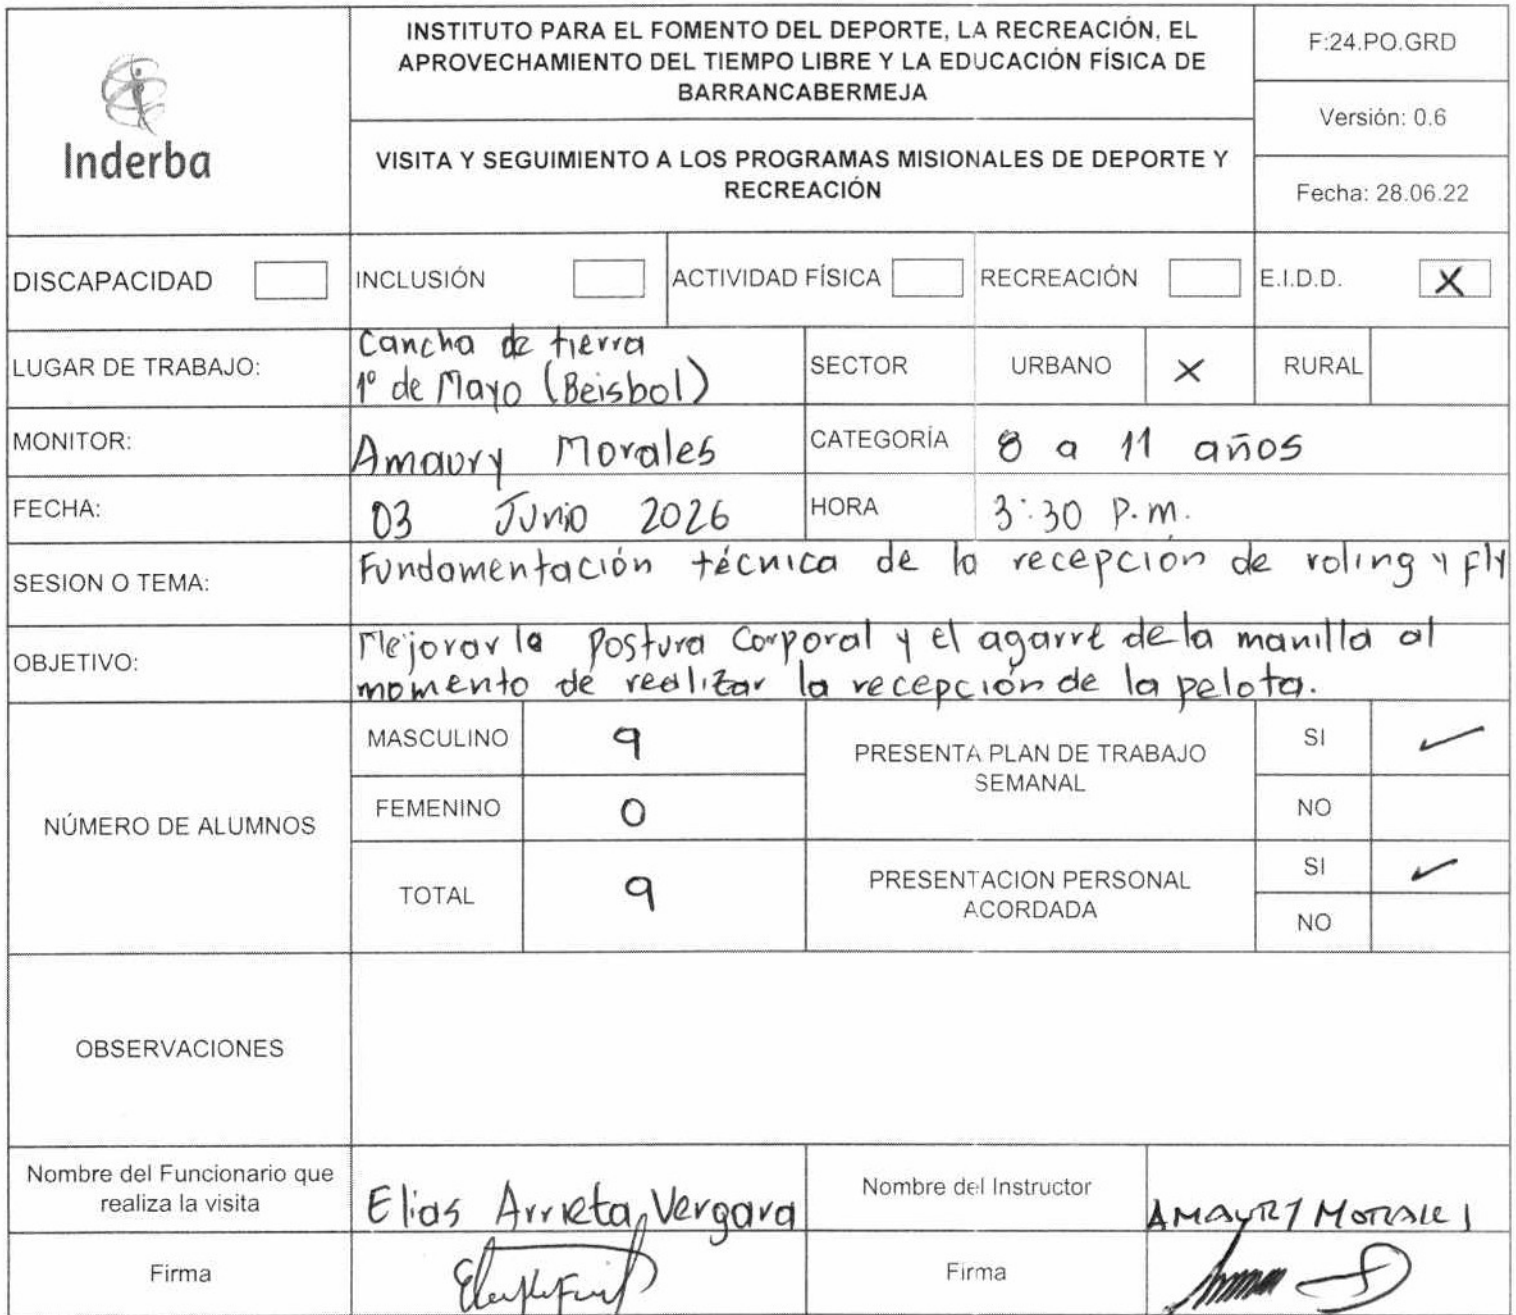 Inderba
INSTITUTO PARA EL FOMENTO DEL DEPORTE, LA RECREACIÓN, EL
APROVECHAMIENTO DEL TIEMPO LIBRE Y LA EDUCACIÓN FÍSICA DE
BARRANCABERMEJA
VISITA Y SEGUIMIENTO A LOS PROGRAMAS MISIONALES DE DEPORTE Y
RECREACIÓN
F:24.PO.GRD
Versión: 0.6
Fecha: 28.06.22
DISCAPACIDAD INCLUSIÓN ACTIVIDAD FÍSICA RECREACIÓN E.I.D.D. X
LUGAR DE TRABAJO:
Cancha de tierra
1º de Mayo (Beisbol)
SECTOR URBANO X RURAL
MONITOR: Amaury Morales CATEGORÍA 8 a 11 años
FECHA: 03 Junio 2026 HORA 3:30 P.m.
SESION O TEMA: Fundamentación técnica de la recepción de roling y Fly
OBJETIVO:
Mejorar la Postura Corporal y el agarre de la manilla al
momento de realizar la recepción de la pelota.
NÚMERO DE ALUMNOS
MASCULINO 9
FEMENINO 0
TOTAL 9
PRESENTA PLAN DE TRABAJO
SEMANAL
SI ✓
NO
PRESENTACION PERSONAL
ACORDADA
SI ✓
NO
OBSERVACIONES
Nombre del Funcionario que
realiza la visita
Elias Arrieta Vergara
Nombre del Instructor
AMAURY MORALES
Firma
Firma